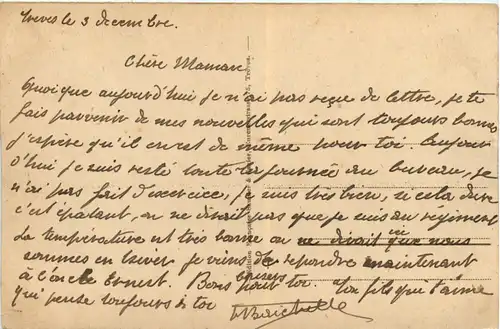 Treves le 3 decembre.
Chère Maman
Quoique aujourd'hui je n'ai pas reçue de lettre, je te
fais parvenir de mes nouvelles qui sont toujours bonnes
j'espère qu'il en est de même pour toi. Aujour
d'hui je suis resté toute la journée au bureau, je
n'ai pas fait d'exercice, je suis très bien, si cela dure
c'est épatant, on ne dirait pas que je suis au regiment
La température est très bonne on ne dirait ici que nous
sommes en hiver je viens de repondre maintenant
à l'oncle Ernest. Bons baisers pour toi. Ton fils qui t'aime
qui pense toujours à toi